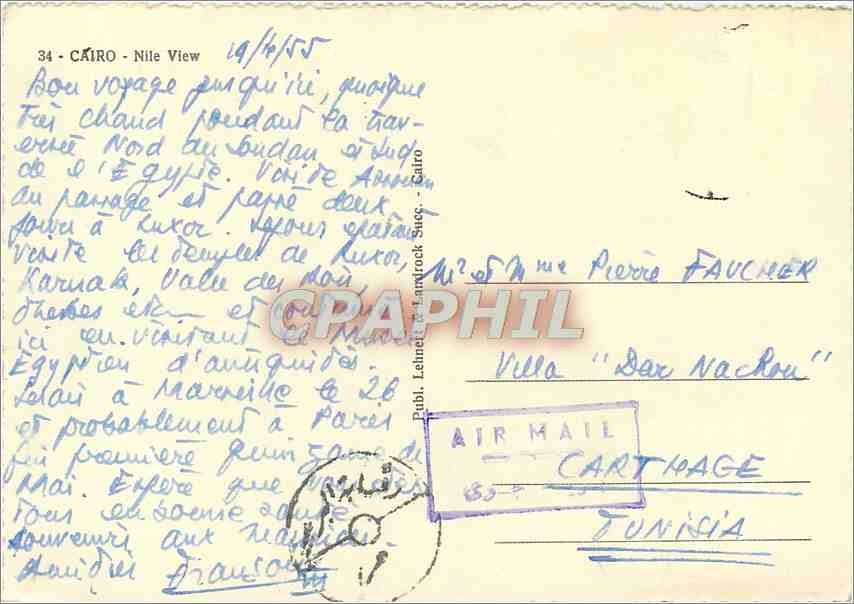 34 - CAIRO - Nile View 19/4/55
Bon voyage jusqu'ici, quoique
Très chaud pendant la trav-
ersée Nord du Soudan et Sud
de l'Égypte. Visité Assouan
au passage et passé deux
jours à Luxor. Nous
visité les temples de Luxor,
Karnak, Vallée des Rois,
Thèbes etc et
ici en visitant le Musée
Égyptien d'antiquités.
Serai à Marseille le 26
et probablement à Paris
fin première quinzaine de
Mai. Espère que vous êtes
tous en bonne santé
souvenirs aux
Amitiés François
Publ. Lehnert & Landrock Succ. - Cairo
Mr et Mme Pierre FAUCHER
Villa "Dar Nachou"
CARTHAGE
TUNISIA
AIR MAIL
CPAPHIL